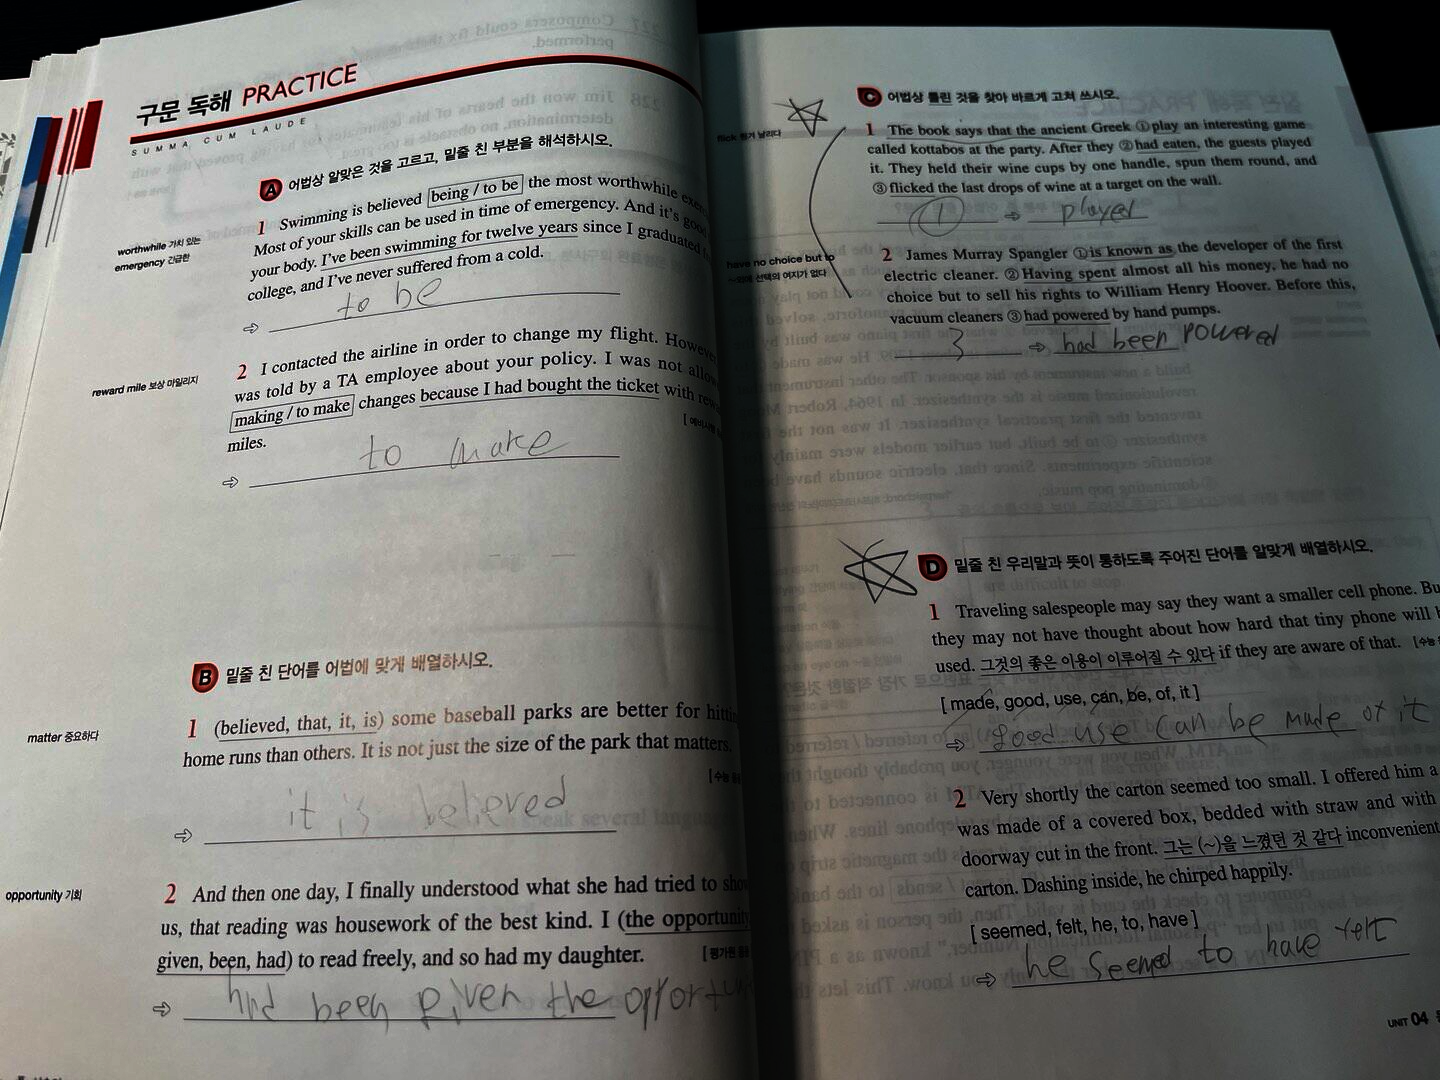 구문 독해 PRACTICE
SUMMA CUM LAUDE
A 어법상 알맞은 것을 고르고, 밑줄 친 부분을 해석하시오.
worthwhile 가치 있는
emergency 긴급한
1 Swimming is believed being / to be the most worthwhile
Most of your skills can be used in time of emergency. And it's
your body. I've been swimming for twelve years since I graduated
college, and I've never suffered from a cold.
⇨ to be
reward mile 보상 마일리지
2 I contacted the airline in order to change my flight.
was told by a TA employee about your policy. I was not
making / to make changes because I had bought the ticket with
miles.
⇨ to make
B 밑줄 친 단어를 어법에 맞게 배열하시오.
matter 중요하다
1 (believed, that, it, is) some baseball parks are better for
home runs than others. It is not just the size of the park that matters.
⇨ it is believed
opportunity 기회
2 And then one day, I finally understood what she had tried to
us, that reading was housework of the best kind. I (the
given, been, had) to read freely, and so had my daughter.
⇨ had been given the
C 어법상 틀린 것을 찾아 바르게 고쳐 쓰시오.
flick 튕겨 날리다
1 The book says that the ancient Greek ①play an interesting game
called kottabos at the party. After they ②had eaten, the guests played
it. They held their wine cups by one handle, spun them round, and
③flicked the last drops of wine at a target on the wall.
① ⇨ played
have no choice but to
~외에 선택의 여지가 없다
2 James Murray Spangler ①is known as the developer of the first
electric cleaner. ②Having spent almost all his money, he had no
choice but to sell his rights to William Henry Hoover. Before this,
vacuum cleaners ③had powered by hand pumps.
3 ⇨ had been powered
D 밑줄 친 우리말과 뜻이 통하도록 주어진 단어를 알맞게 배열하시오.
1 Traveling salespeople may say they want a smaller cell phone.
they may not have thought about how hard that tiny phone will
used. 그것의 좋은 이용이 이루어질 수 있다 if they are aware of that.
[made, good, use, can, be, of, it]
⇨ good use can be made of it
2 Very shortly the carton seemed too small. I offered him a
was made of a covered box, bedded with straw and with
doorway cut in the front. 그는 (~)을 느꼈던 것 같다 inconvenient
carton. Dashing inside, he chirped happily.
[seemed, felt, he, to, have]
⇨ he seemed to have felt
UNIT 04